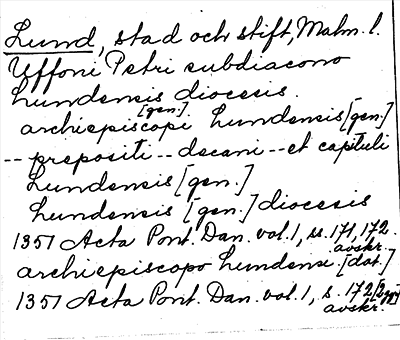 Lund, stad och stift, Malm. l.
Uffoni Petri subdiacono
Lundensis diocesis.
[gen.]
archiepiscopi Lundensis [gen.]
-- prepositi -- decani -- et capituli
Lundensis [gen.]
Lundensis [gen.] diocesis
1351 Acta Pont. Dan. vol. 1, ss. 171, 172.
avskr.
archiepiscopo Lundensi. [dat.]
1351 Acta Pont. Dan. vol. 1, s. 172 [2 ggr]
avskr.